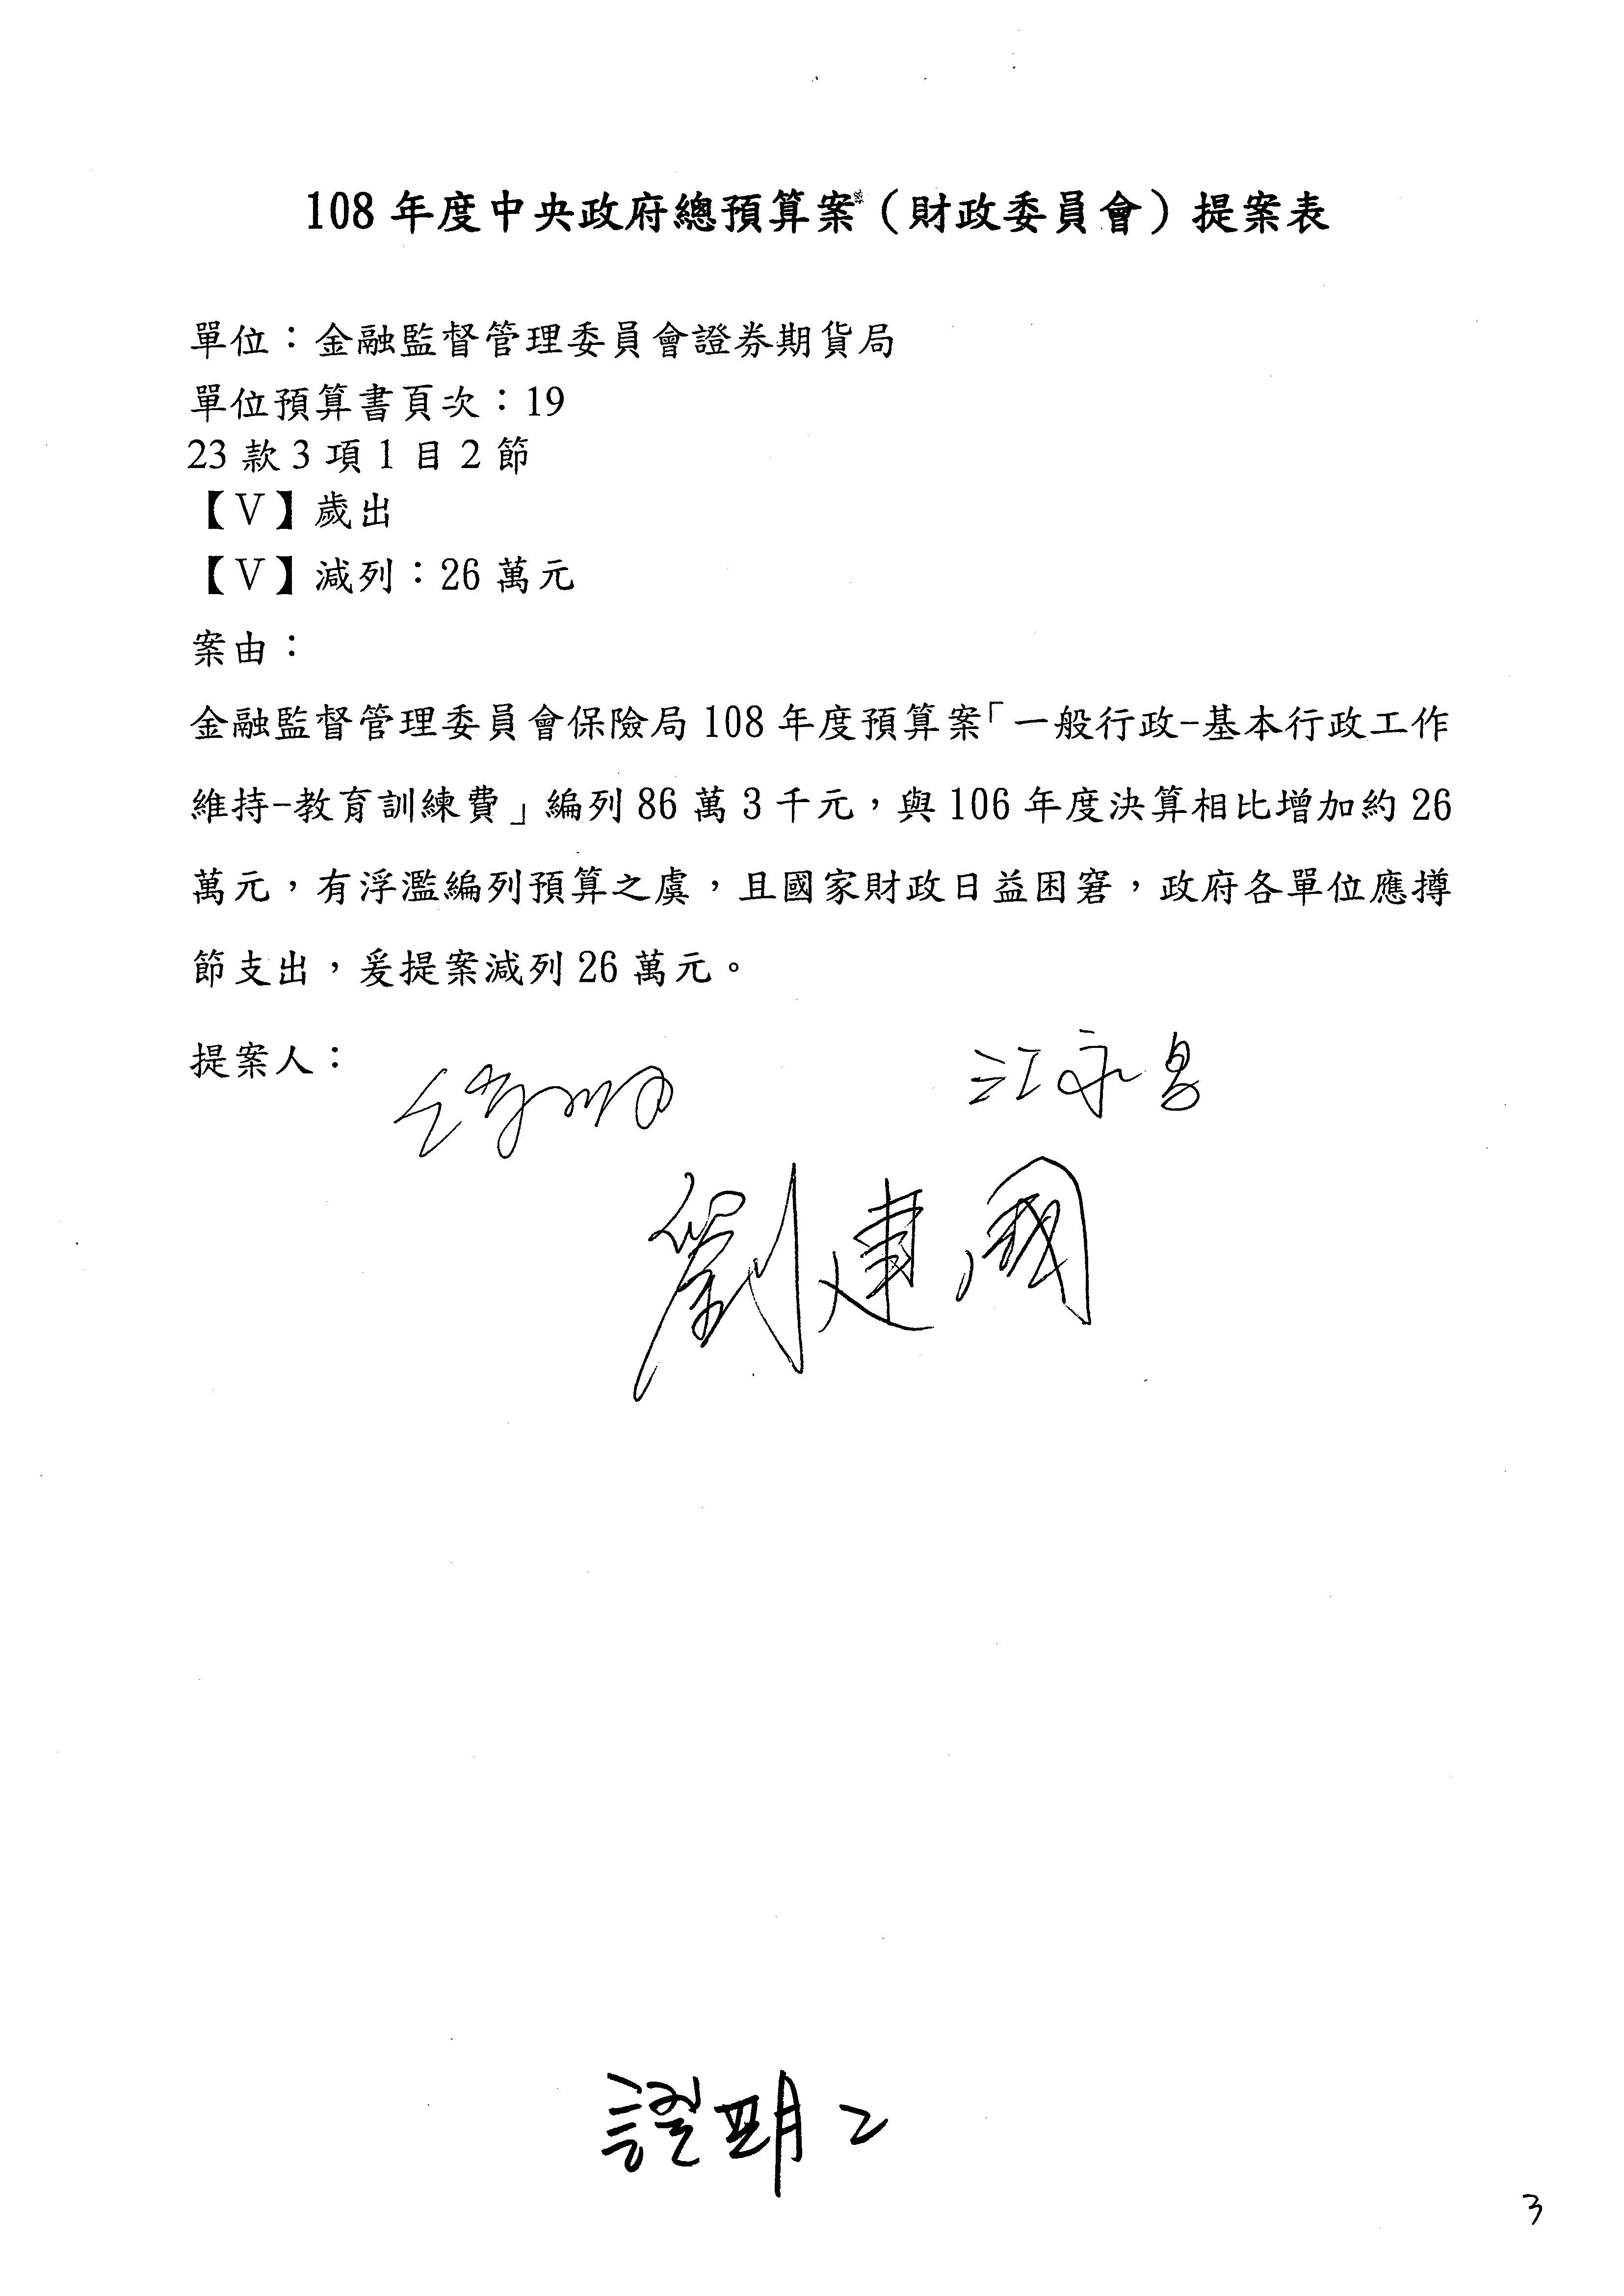 108 年度中央政府總預算案（財政委員會）提案表
單位：金融監督管理委員會證券期貨局
單位預算書頁次：19
23 款 3 項 1 目 2 節
【V】歲出
【V】減列：26 萬元
案由：
金融監督管理委員會保險局 108 年度預算案「一般行政-基本行政工作
維持-教育訓練費」編列 86 萬 3 千元，與 106 年度決算相比增加約 26
萬元，有浮濫編列預算之虞，且國家財政日益困窘，政府各單位應撙
節支出，爰提案減列 26 萬元。
提案人：
江永昌
劉建國
證期 2
3